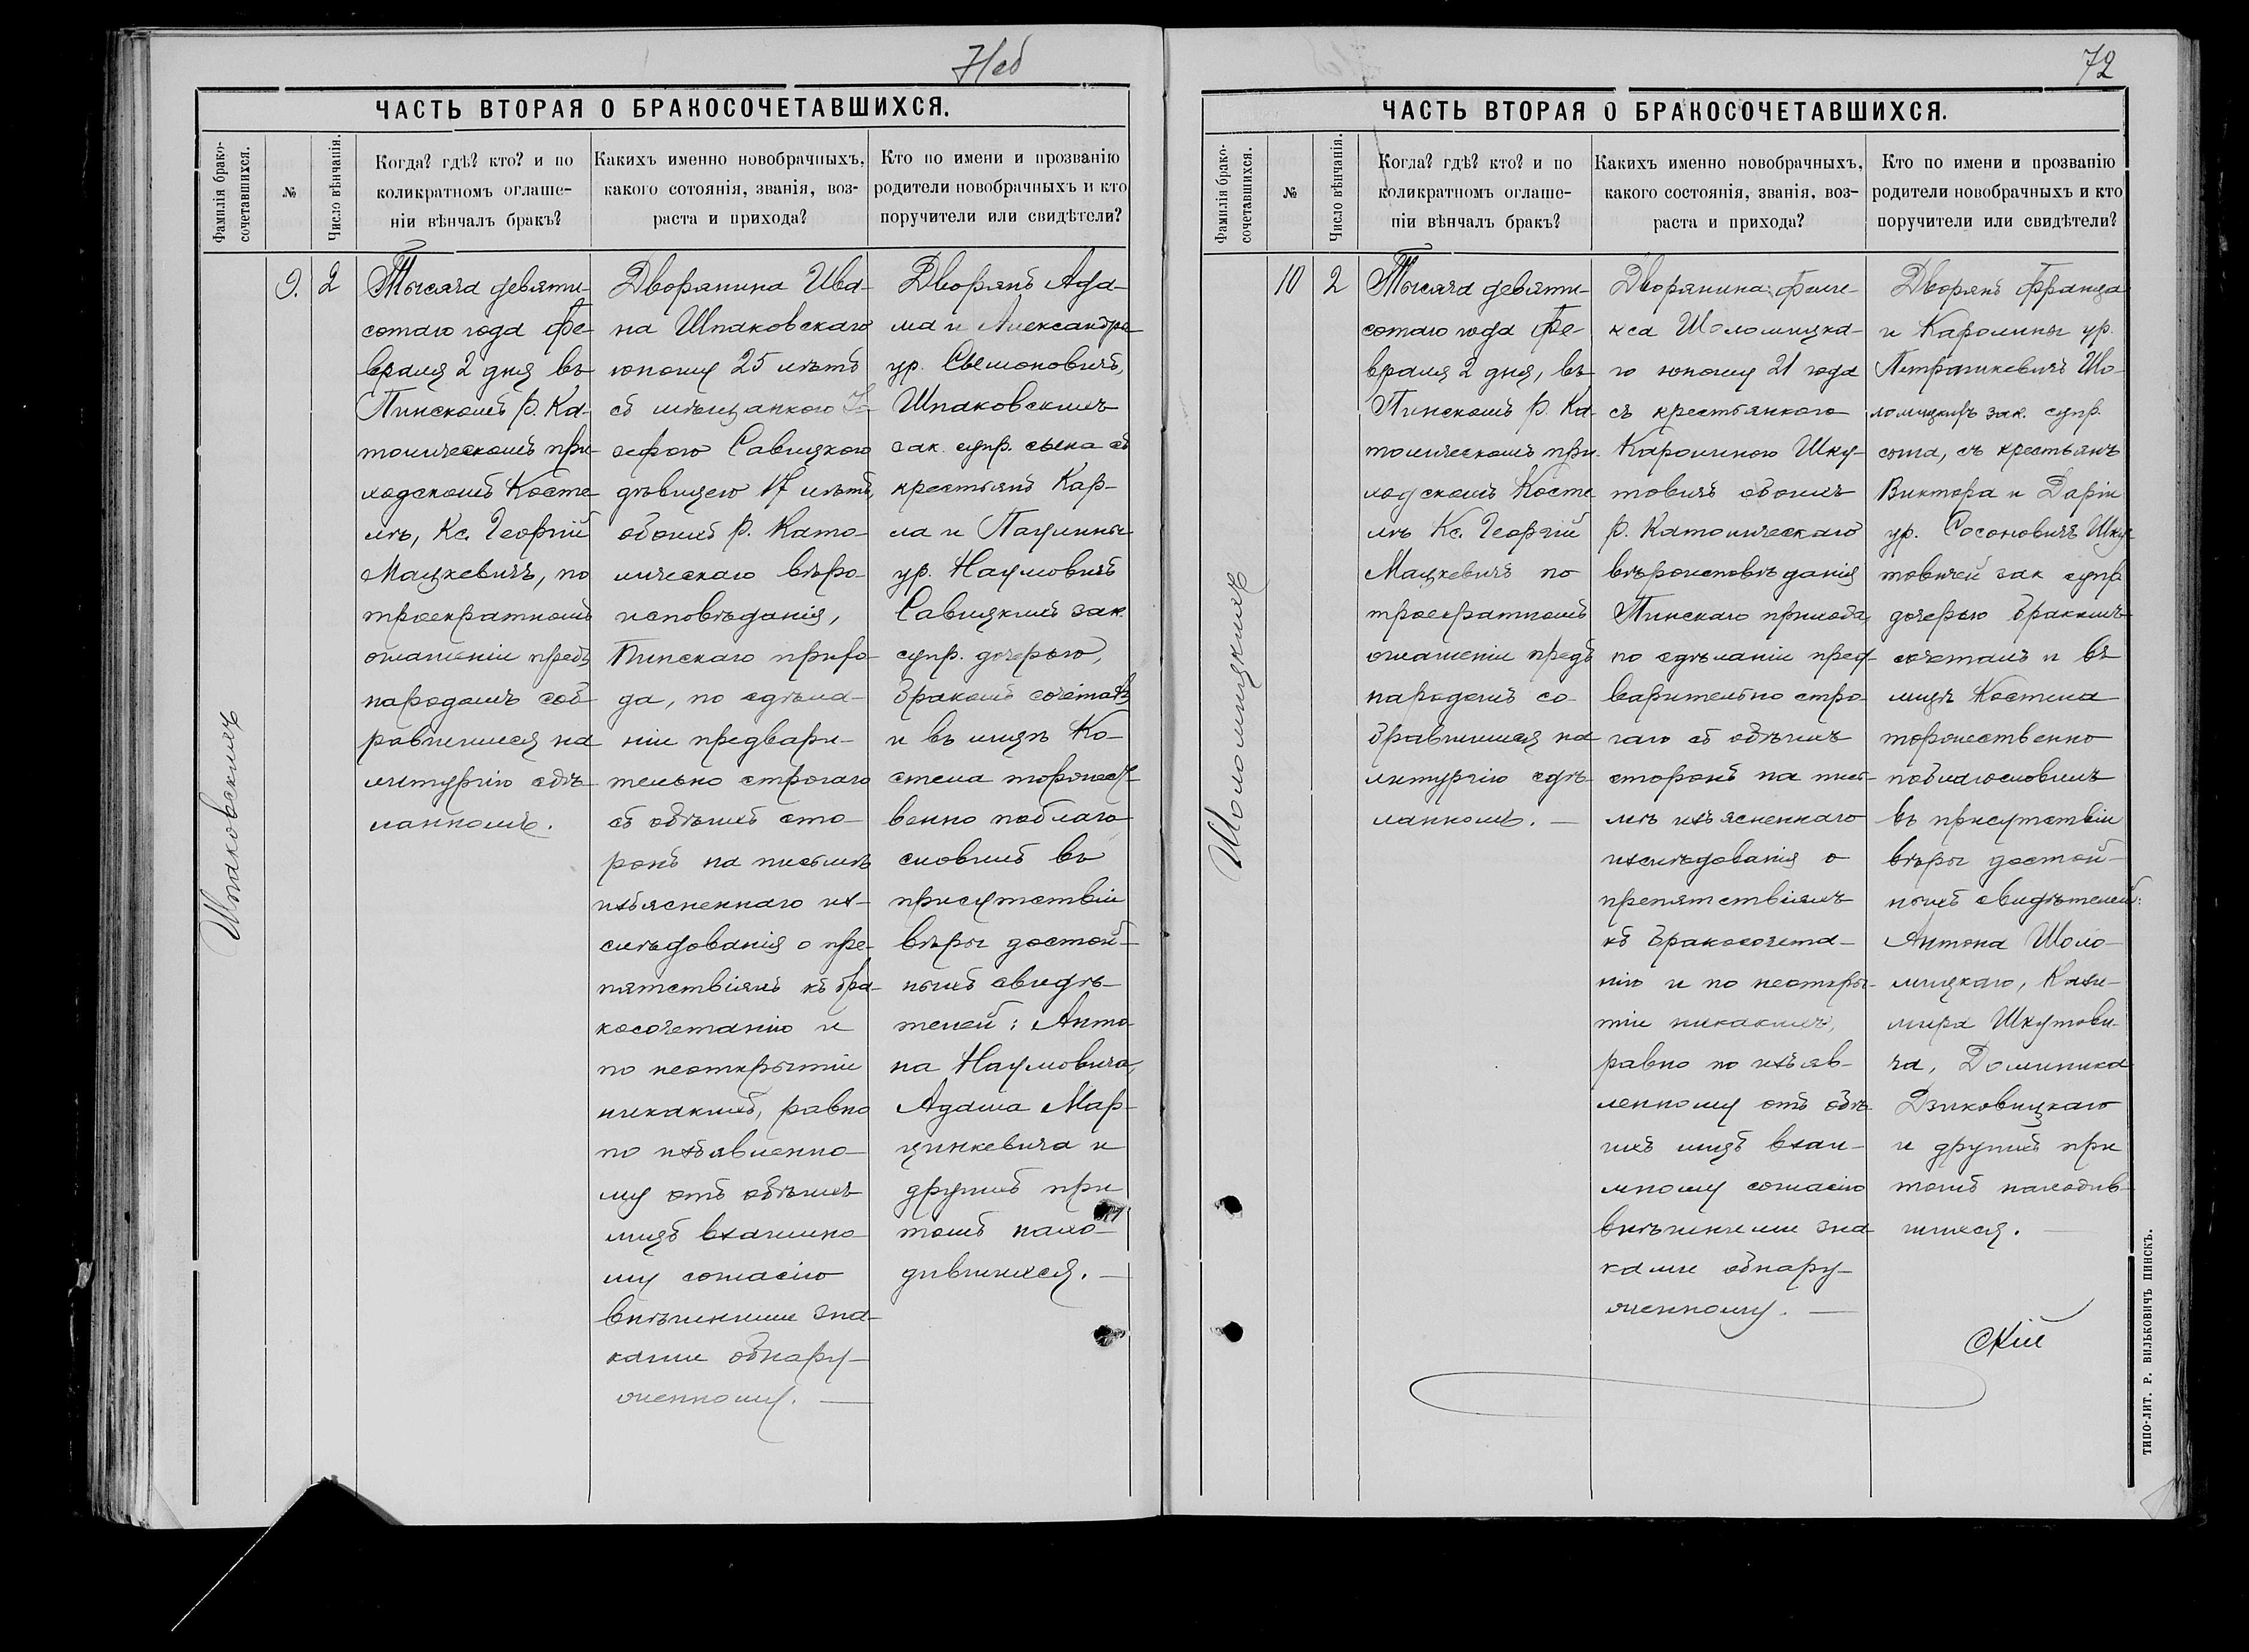 71об
ЧАСТЬ ВТОРАЯ О БРАКОСОЧЕТАВШИХСЯ.
Фамилія брако-
сочетавшихся.
№
Число вѣнчанія.
Когда? гдѣ? кто? и по
коликратномъ оглаше-
ніи вѣнчалъ бракъ?
Какихъ именно новобрачныхъ,
какого сотоянія, званія, воз-
раста и прихода?
Кто по имени и прозванію
родители новобрачныхъ и кто
поручители или свидѣтели?
Шпаковскихъ
9.
2
Тысяча девяти-
сотаго года Фе-
враля 2 дня въ
Пинскомъ Р. Ка-
толическомъ при-
ходскомъ Косте-
лѣ, Кс. Георгій
Мацкевичъ, по
троекратномъ
оглашеніи предъ
народомъ соб-
равшимся на
литургію сдѣ-
ланномъ.
Дворянина Ива-
на Шпаковскаго
юношу 25 лѣтъ
съ мѣщанкою Іо-
зефою Савицкою
дѣвицею 17 лѣтъ,
обоихъ Р. Като-
лическаго вѣро-
исповѣданія,
Пинскаго прихо-
да, по сдѣла-
ніи предвари-
тельно строгаго
съ обѣихъ сто-
ронъ на письмѣ
изъясненнаго из-
слѣдованія о пре-
пятствіяхъ къ бра-
косочетанію и
по неоткрытіи
никакихъ, равно
по изъявленно-
му отъ обѣихъ
лицъ взаимно-
му согласію
внѣшними зна-
ками обнару-
женному. —
Дворянъ Ада-
ма и Александры
ур. Сымоновичъ,
Шпаковскихъ
зак. супр. сына съ
крестьянъ Кар-
ла и Паулины
ур. Наумовичъ
Савицкихъ зак.
супр. дочерью,
бракомъ сочеталъ
и въ лицѣ Ко-
стела торжест-
венно поблаго-
словилъ въ
присутствіи
вѣры достой-
ныхъ свидѣ-
телей: Анто-
на Наумовича,
Адама Мар-
цинкевича и
другихъ при
томъ нахо-
дившихся. —
72
ЧАСТЬ ВТОРАЯ О БРАКОСОЧЕТАВШИХСЯ.
Фамилія брако-
сочетавшихся.
№
Число вѣнчанія.
Когда? гдѣ? кто? и по
коликратномъ оглаше-
ніи вѣнчалъ бракъ?
Какихъ именно новобрачныхъ,
какого состоянія, званія, воз-
раста и прихода?
Кто по имени и прозванію
родители новобрачныхъ и кто
поручители или свидѣтели?
Шоломицкихъ
10
2
Тысяча девяти-
сотаго года Фе-
враля 2 дня, въ
Пинскомъ Р. Ка-
толическомъ при-
ходскомъ Косте-
лѣ Кс. Георгій
Мацкевичъ по
троекратномъ
оглашеніи предъ
народомъ со-
бравшимся на
литургію сдѣ-
ланномъ. —
Дворянина Фели-
кса Шоломицка-
го юношу 21 года
съ крестьянкою
Каролиною Шку-
товичъ обоихъ
Р. Католическаго
вѣроисповѣданія
Пинскаго прихода,
по сдѣланіи пред-
варительно стро-
гаго съ обѣихъ
сторонъ на пись-
мѣ изъясненнаго
изслѣдованія о
препятствіяхъ
къ бракосочета-
нію и по неоткры-
тіи никакихъ,
равно по изъяв-
ленному отъ обѣ-
ихъ лицъ взаи-
мному согласію
внѣшними зна-
ками обнару-
женному. —
Дворянъ Франца
и Каролины ур.
Петрашкевичъ Шо-
ломицкихъ зак. супр.
сына, съ крестьянъ
Виктора и Даріи
ур. Сосоновичъ Шку-
товичей зак супр
дочерью бракомъ
сочеталъ и въ
лицѣ Костела
торжественно
поблагословилъ
въ присутствіи
вѣры достой-
ныхъ свидѣтелей:
Антона Шоло-
мицкаго, Кази-
мира Шкутови-
ча, Доминика
Дзиковицкаго
и другихъ при
томъ находив-
шихся. —
ТИПО-ЛИТ. Р. ВИЛЬКОВИЧЪ ПИНСКЪ.